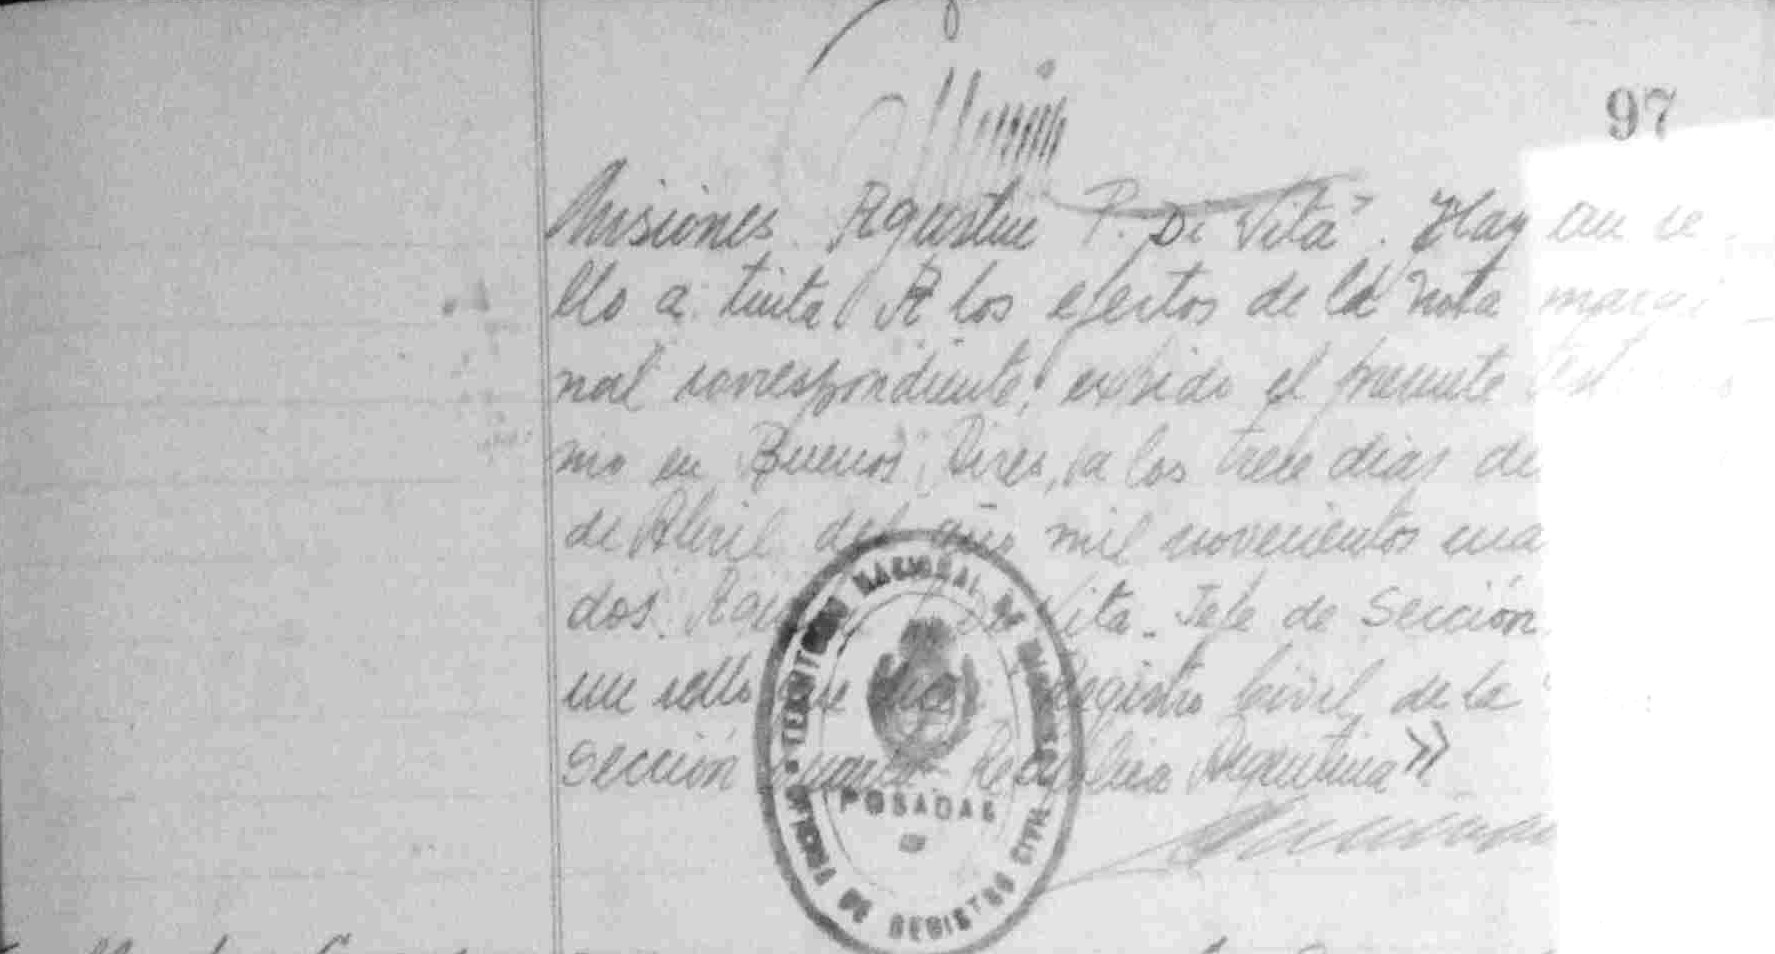 97
Misiones. Agustin P. Di Vita". Hay un se
llo a tinta. A los efectos de la nota margi
nal correspondiente, expido el presente
nio en Buenos Aires, a los trece dias de
de Abril del año mil novecientos cua
dos. Vita. Jefe de Sección
un sello que dice: "Registro Civil de la
Sección República Argentina"
TERRITORIO NACIONAL DE MISIONES
POSADAS
OFICINA DE REGISTRO CIVIL